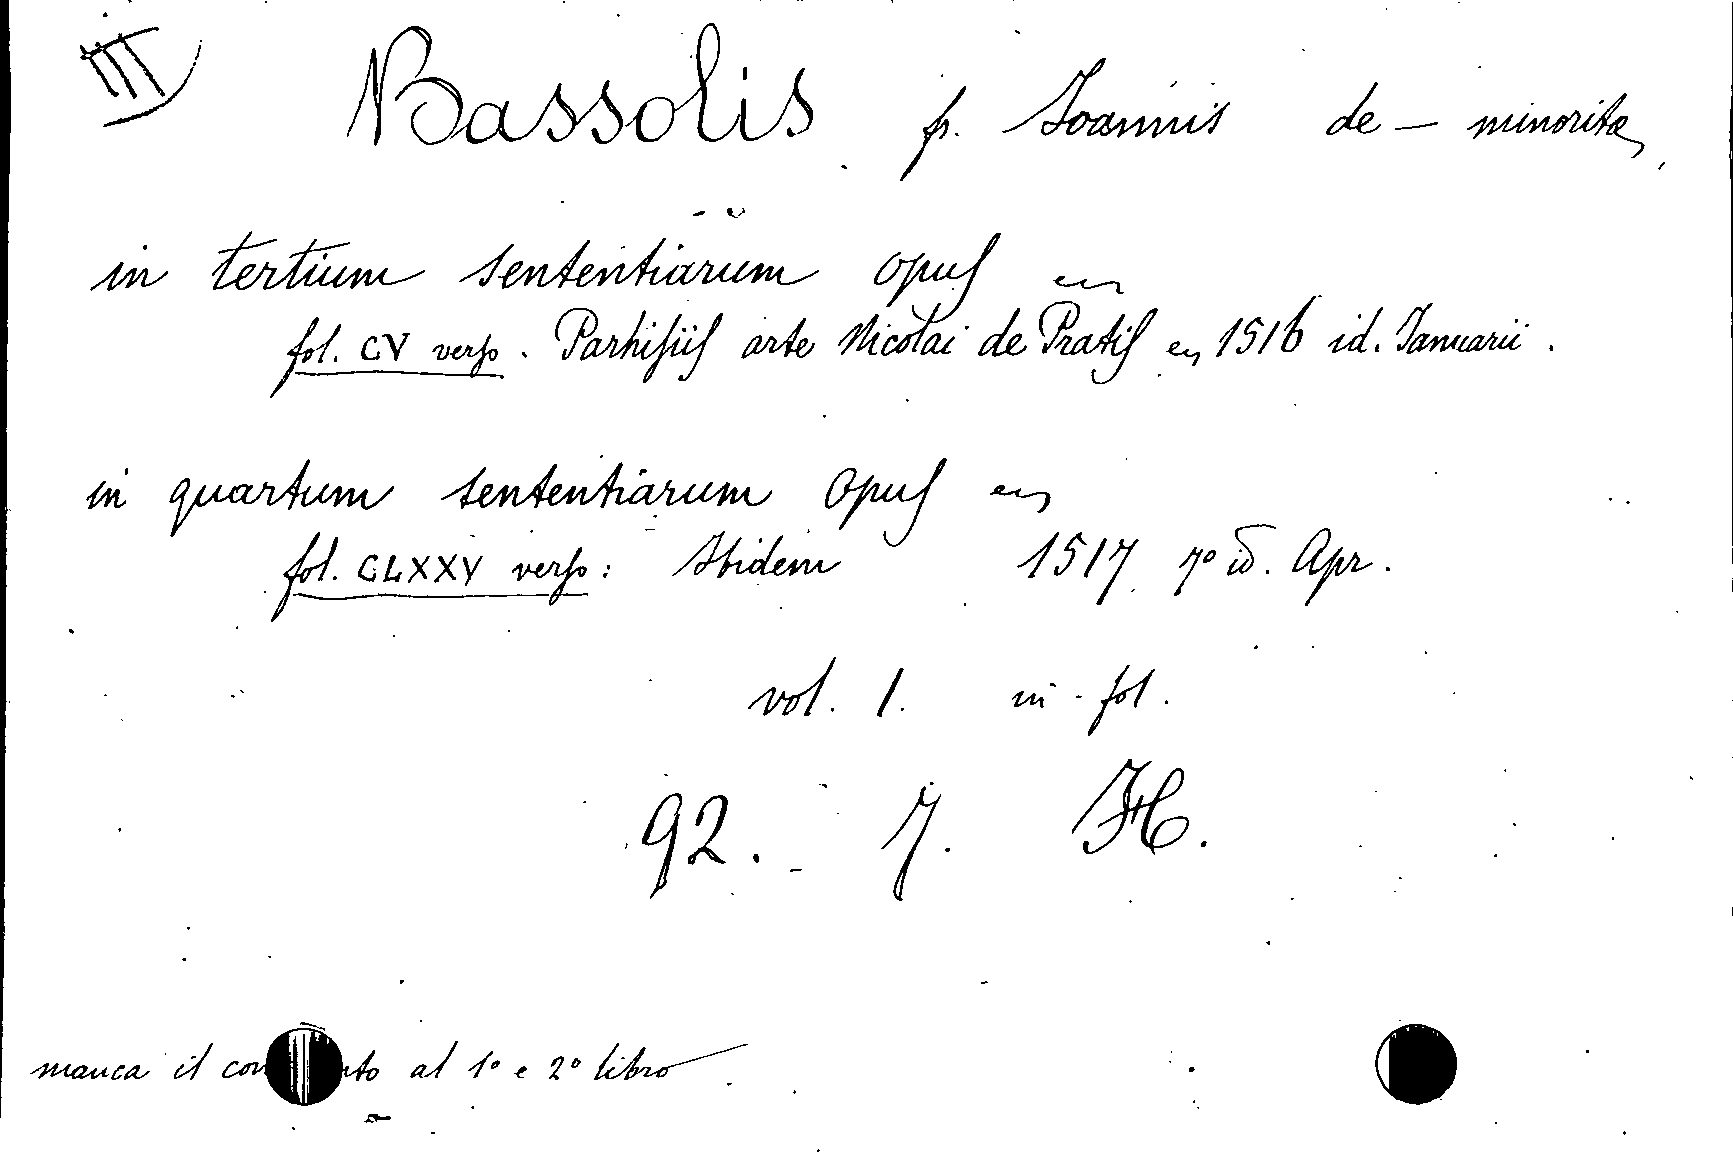 III Bassolis fr. Ioannis de — minoritæ,
in tertium sententiarum opus
fol. CV verso. Parhisiis arte Nicolai de Pratis 1516 id. Ianuarii.
in quartum sententiarum opus
fol. CLXXV verso: Ibidem 1517 7º id. Apr.
vol. 1. in-fol.
92. 7. H.
manca il al 1º e 2º libro